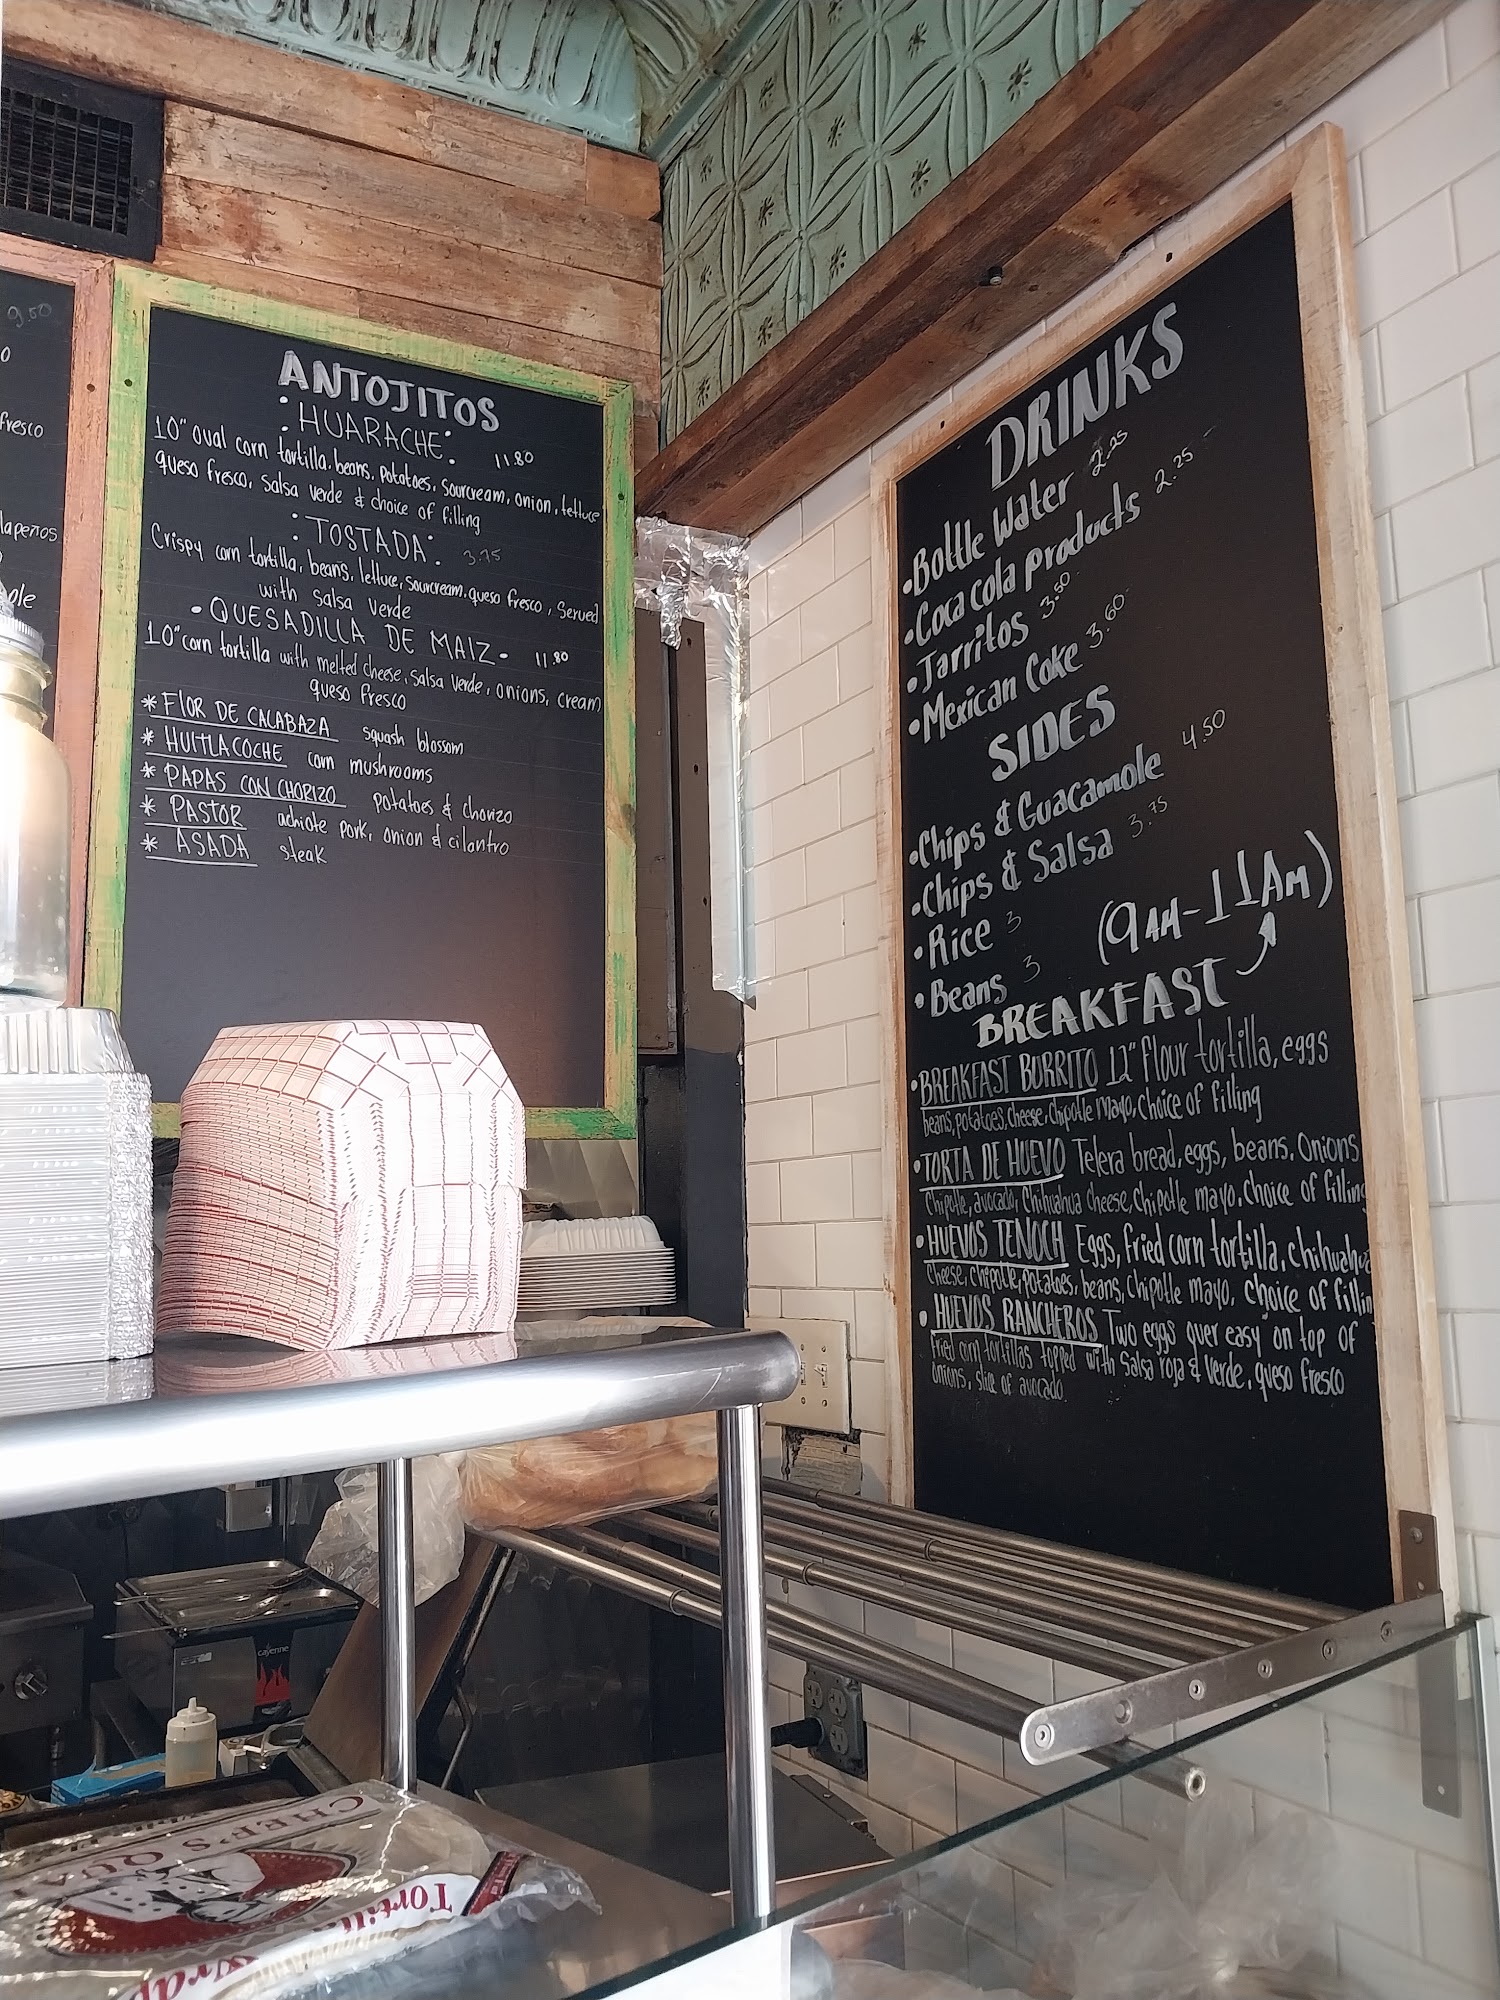 9.50
0
fresco
ANTOJITOS
• HUARACHE • 11.80
10" oval corn tortilla, beans, potatoes, sourcream, onion, lettuce
queso fresco, salsa verde & choice of filling
• TOSTADA • 3.75
Crispy corn tortilla, beans, lettuce, sourcream, queso fresco, Served
with salsa verde
• QUESADILLA DE MAIZ • 11.80
10" corn tortilla with melted cheese, salsa verde, onions, cream
queso fresco
* FLOR DE CALABAZA squash blossom
* HUITLACOCHE corn mushrooms
* PAPAS CON CHORIZO potatoes & chorizo
* PASTOR achiote pork, onion & cilantro
* ASADA steak
DRINKS
• Bottle Water 2.25
• Coca cola products 2.25
• Jarritos 3.50
• Mexican Coke 3.60
SIDES
• Chips & Guacamole 4.50
• Chips & Salsa 3.75
• Rice 3
• Beans 3
(9AM-11AM)
BREAKFAST
• BREAKFAST BURRITO 12" flour tortilla, eggs
beans, potatoes, cheese, chipotle mayo, choice of filling
• TORTA DE HUEVO Telera bread, eggs, beans, onions
Chipotle, avocado, Chihuahua cheese, chipotle mayo, choice of filling
• HUEVOS TENOCH Eggs, fried corn tortilla, chihuahua
cheese, chipotle, potatoes, beans, chipotle mayo, choice of fillin
• HUEVOS RANCHEROS Two eggs "over easy" on top of
fried corn tortillas topped with salsa roja & verde, queso fresco
onions, slice of avocado
cayenne
CHEF'S QUA